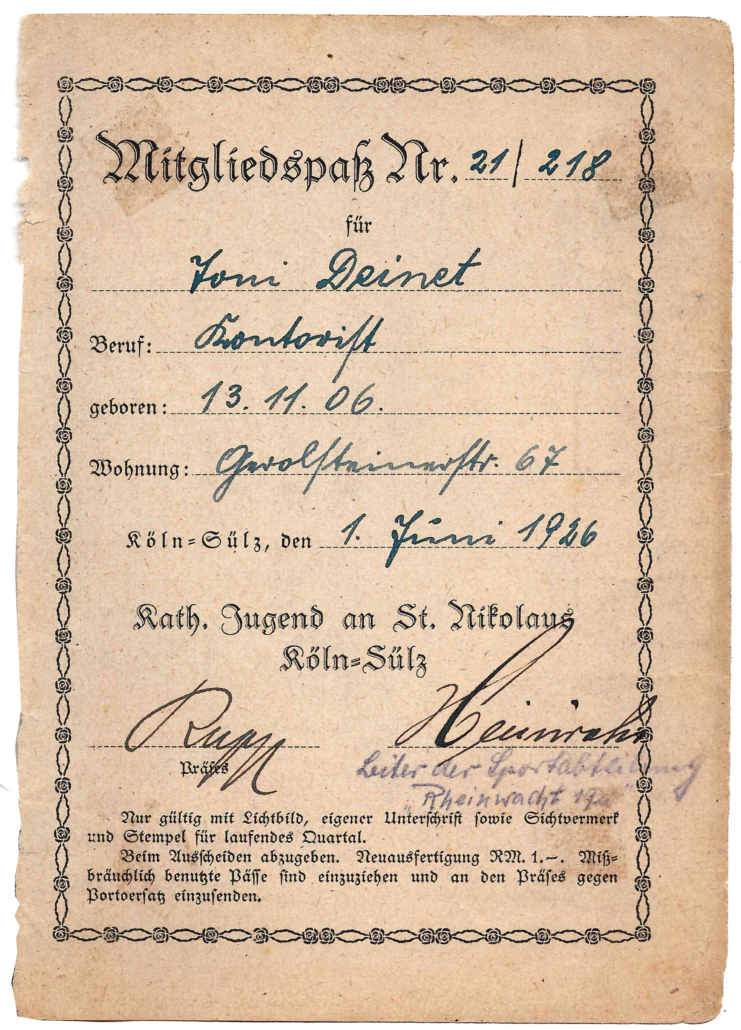 Mitgliedspaß Nr. 21/218
für
Toni Deinet
Beruf: Kontorist
geboren: 13. 11. 06.
Wohnung: Gerolsteinerstr. 67
Köln-Sülz, den 1. Juni 1926
Kath. Jugend an St. Nikolaus
Köln-Sülz
Rupp
Präses
Leiter der Sportabteilung
"Rheinwacht
Nur gültig mit Lichtbild, eigener Unterschrift sowie Sichtvermerk
und Stempel für laufendes Quartal.
Beim Ausscheiden abzugeben. Neuausfertigung RM. 1.–. Miß-
bräuchlich benutzte Pässe sind einzuziehen und an den Präses gegen
Portoersatz einzusenden.